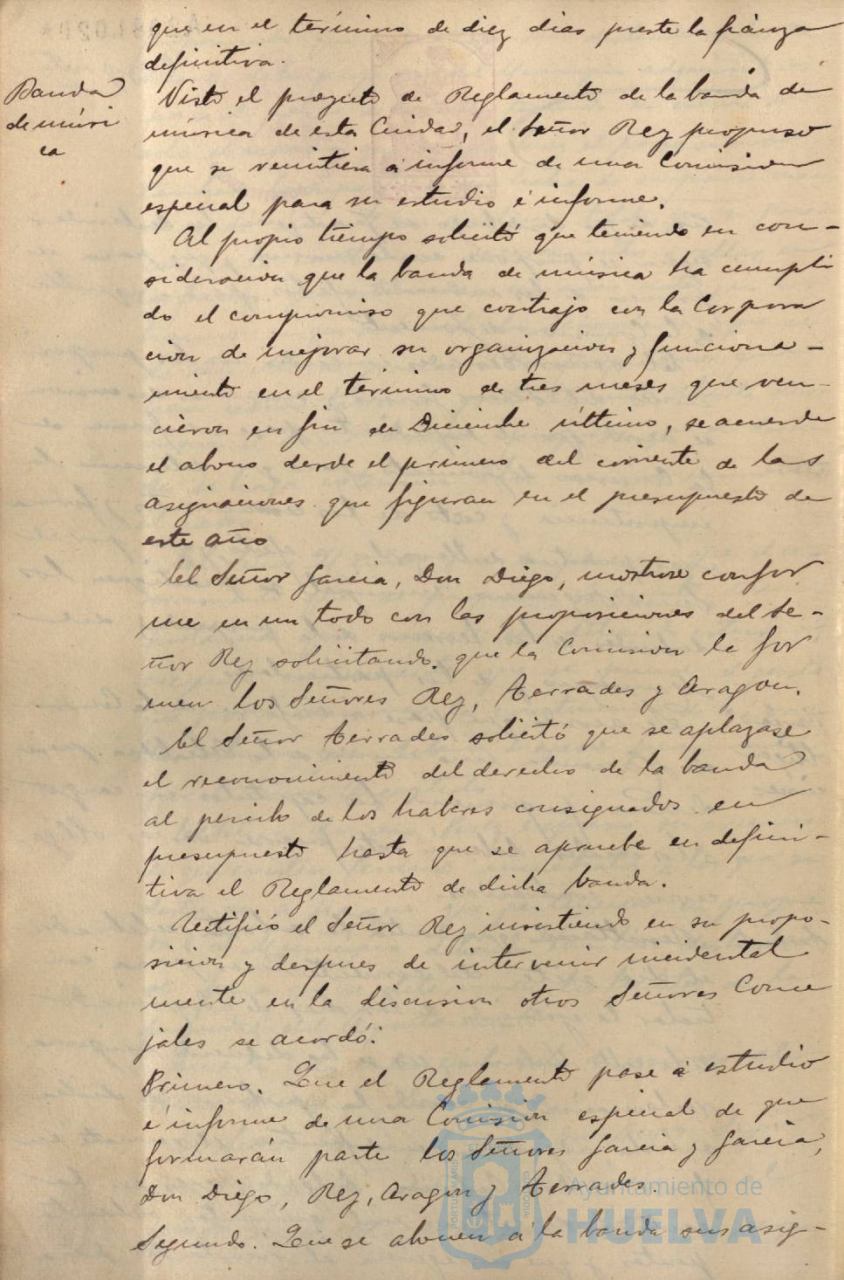 que en el término de diez dias preste la fianza
definitiva.
Banda
de músi
ca
Visto el proyecto de Reglamento de la banda de
música de esta Ciudad, el Señor Rey propuso
que se remitiera á informe de una Comision
especial para su estudio é informe.
Al propio tiempo solicitó que teniendo en con-
sideracion que la banda de música ha cumpli
do el compromiso que contrajo con la Corpora
cion de mejorar su organizacion y funciona-
miento en el término de tres meses que ven-
cieron en fin de Diciembre último, se acuerde
el abono desde el primero del corriente de las
asignaciones que figuran en el presupuesto de
este año
El Señor Garcia, Don Diego, mostrose confor
me en un todo con las proposiciones del Se-
ñor Rey solicitando que la Comision la for
men los Señores Rey, Terrades y Aragon.
El Señor Terrades solicitó que se aplazase
el reconocimiento del derecho de la banda
al percibo de los haberes consignados en
presupuesto hasta que se apruebe en defini-
tiva el Reglamento de dicha banda.
Rectificó el Señor Rey insistiendo en su propo-
sicion y despues de intervenir incidental
mente en la discusion otros Señores Conce
jales se acordó:
Primero. Que el Reglamento pase á estudio
é informe de una Comision especial de que
formarán parte los Señores Garcia y Garcia,
Don Diego, Rey, Aragon y Terrades.
Segundo. Que se abonen á la banda sus asig-
Ayuntamiento de
HUELVA